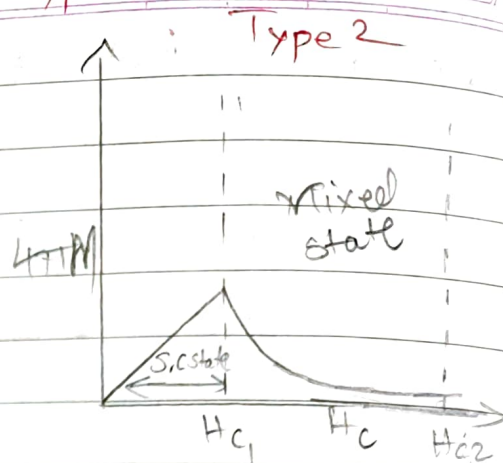 Type 2
Mixed
state
4πM
S.C state
Hc₁
Hc
Hc2